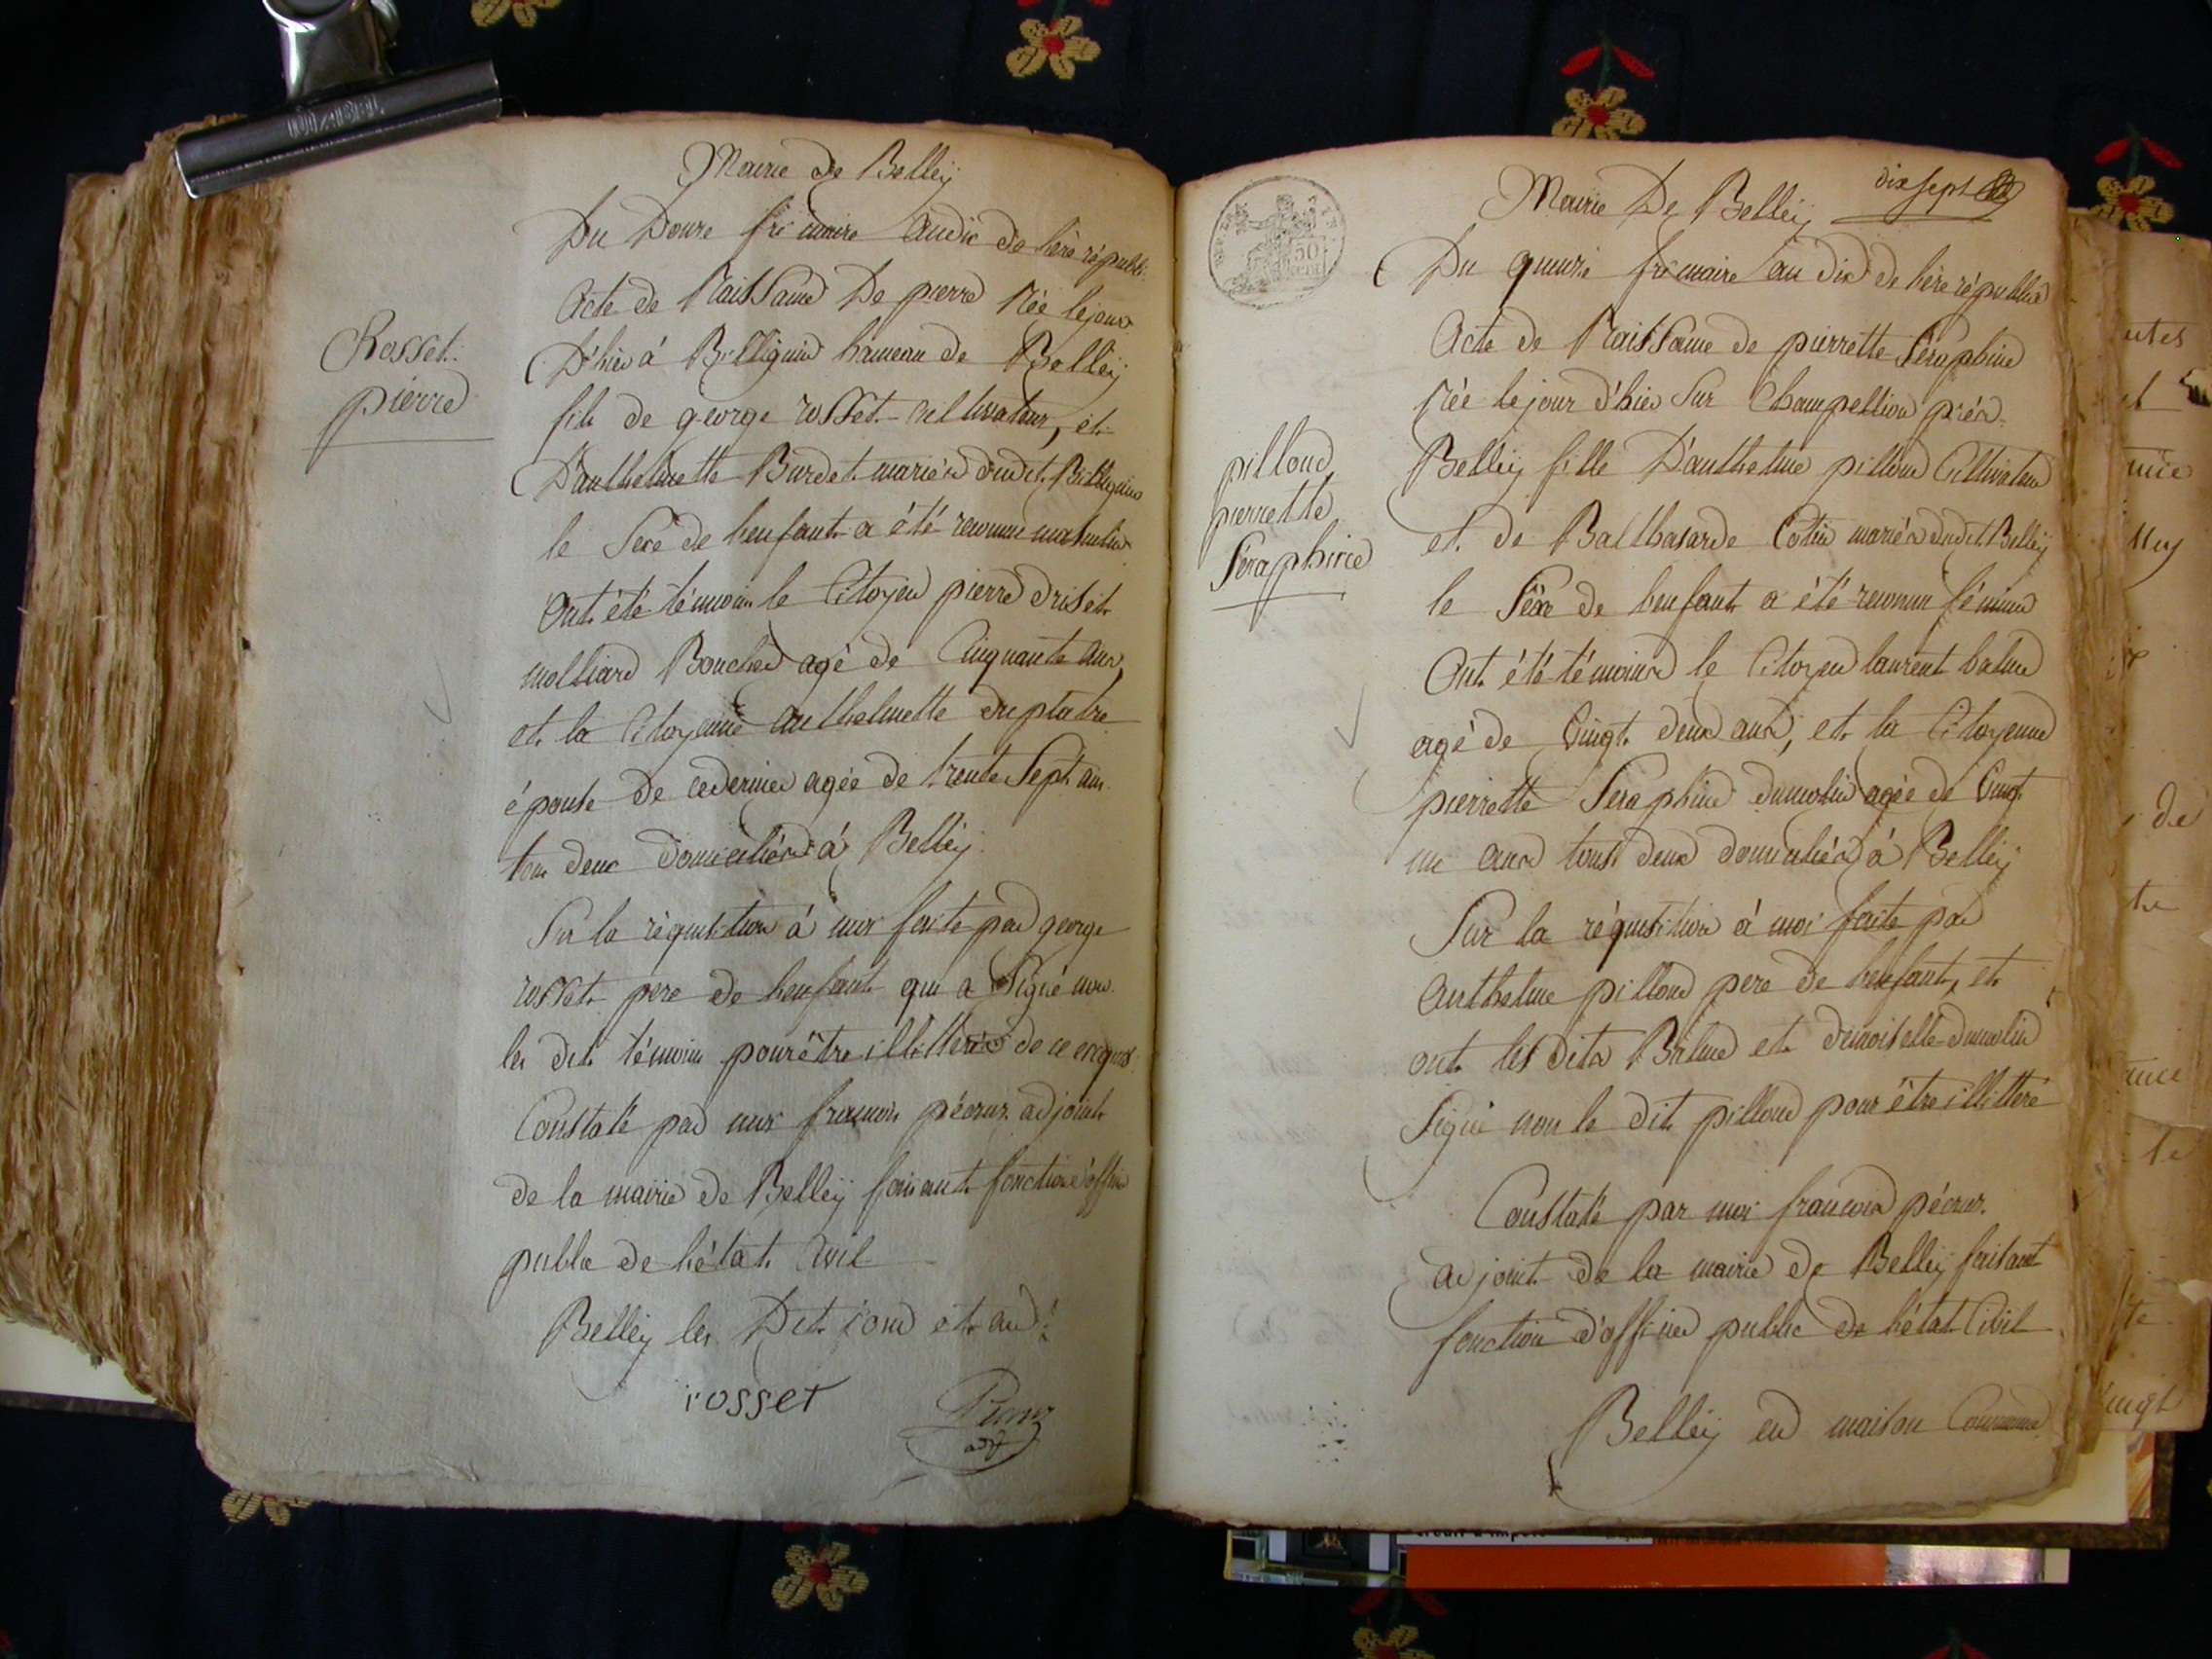 Mairie de Belleÿ
Du Douze frimaire an dix de l'ère républi.
Acte de Naissance De pierre Née le jour
D'hier à Billignin hameau de Belleÿ
fils de george rosset cultivateur, et
D'anthelmette Burdet mariés dudit Billignin
le Sexe de l'enfant a été reconnu masculin
Ont été témoin le Citoyen pierre
molliard Boucher agé de Cinquante ans,
et la Citoyenne anthelmette duplatre
épouse de ce dernier agée de trente Sept ans
tous deux domiciliés à Belleÿ
Sur la réquisition à moi faite par george
rosset pere de l'enfant qui a Signé non
les dits témoins pour être illitteré de ce enquis
Constaté par moi françois pécruz adjoint
de la mairie de Belleÿ faisant fonction d'officier
public de l'état Civil
Belleÿ les Dit jour et an
rosset
adjt
Rosset
pierre
Mairie De Belleÿ
dix sept
Du quinze frimaire an dix de l'ère républic
Acte de Naissance de pierrette Séraphine
Née le jour d'hier Sur Champellion près
Belleÿ fille D'anthelme pilloud Cultivateur
et de Balthasarde Cotin mariés dudit Belleÿ
le Sexe de l'enfant a été reconnu féminin
Ont été témoins le Citoyen laurent balme
agé de Vingt deux ans, et la Citoyenne
pierrette Séraphine dumolin agée de Vingt
un ans tous deux domiciliés à Belleÿ
Sur la réquisition à moi faite par
Anthelme pilloud pere de l'enfant, et
ont les dits Balme et demoiselle dumolin
Signé non le dit pilloud pour être illitteré
Constaté par moi françois pécruz
adjoint de la mairie de Belleÿ faisant
fonction d'officier public de l'état Civil
Belleÿ en maison Commune
pilloud
pierrette
Séraphine
50